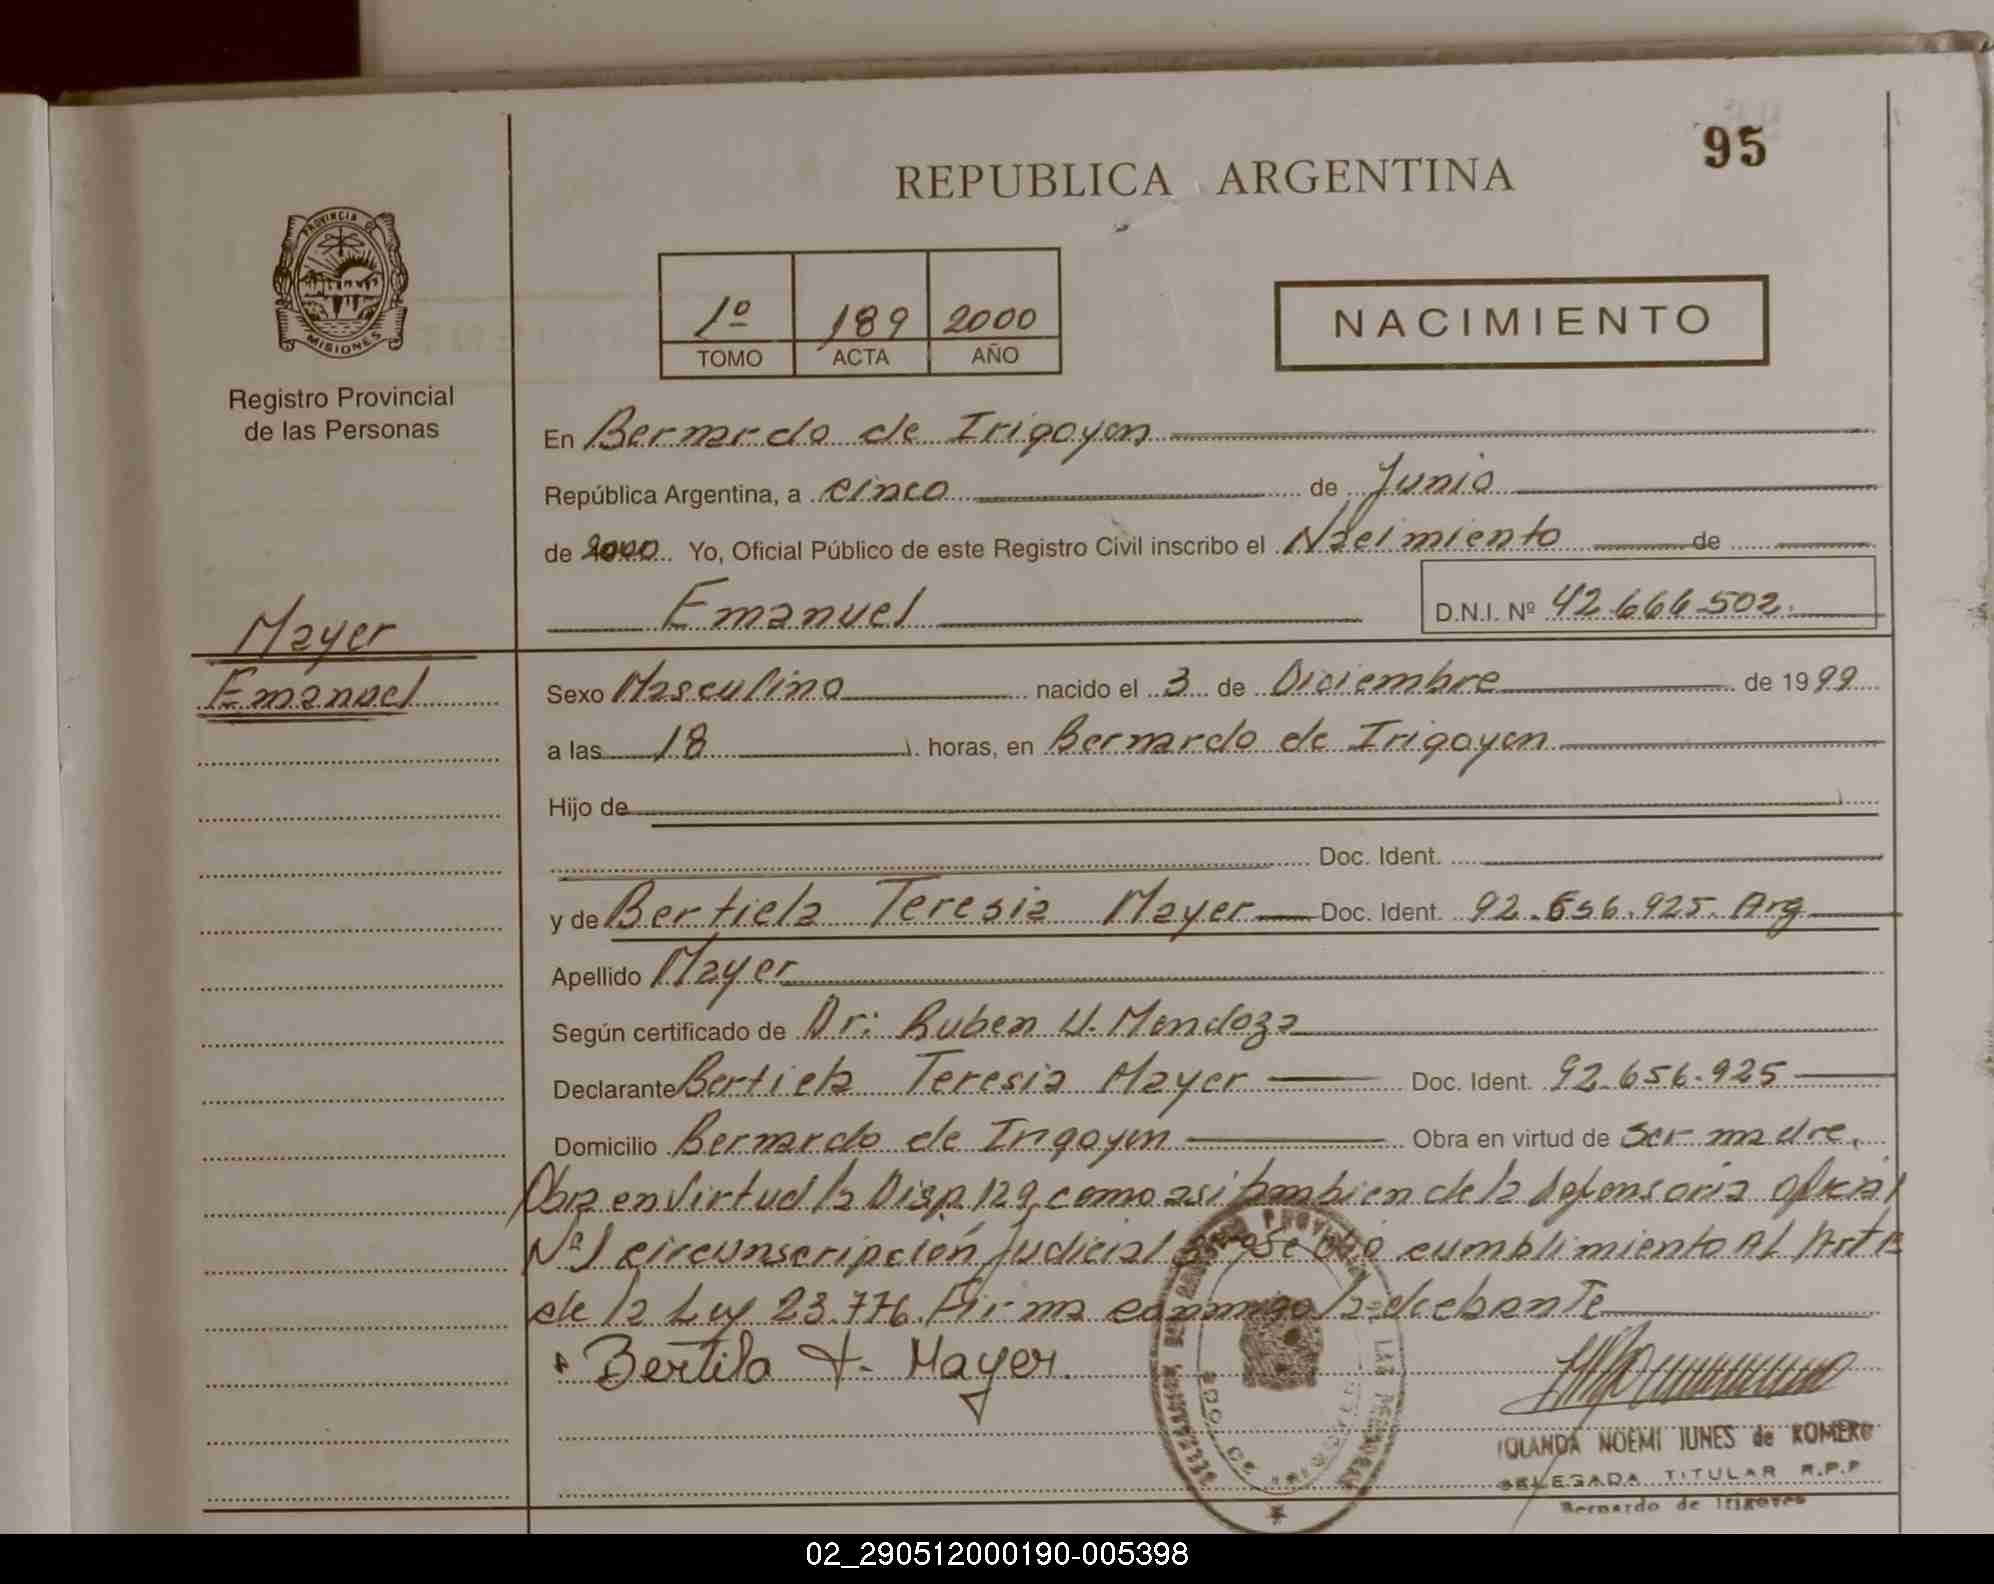 95
REPUBLICA ARGENTINA
PROVINCIA DE
MISIONES
Registro Provincial
de las Personas
1º 189 2000
TOMO ACTA AÑO
NACIMIENTO
En Bernardo de Irigoyen
República Argentina, a cinco de Junio
de 2000 Yo, Oficial Público de este Registro Civil inscribo el Nacimiento de
Emanuel D.N.I. Nº 42.666.502
Mayer
Emanuel
Sexo Masculino nacido el 3 de Diciembre de 1999
a las 18 horas, en Bernardo de Irigoyen
Hijo de
Doc. Ident.
y de Bertiela Teresia Mayer Doc. Ident. 92.656.925. Arg
Apellido Mayer
Según certificado de Dr: Ruben U. Mendoza
Declarante Bertiela Teresia Mayer Doc. Ident. 92.656.925
Domicilio Bernardo de Irigoyen Obra en virtud de ser madre,
Obra en virtud la Disp. 129, como asi tambien de la defensoria oficial
Nº 1 circunscripción judicial cumblimiento AL Art
de la Ley 23.776. Firma conmigo la
Bertila T. Mayer.
IOLANDA NOEMI JUNES de ROMERO
DELEGADA TITULAR R.P.P
Bernardo de Irigoyen
02_290512000190-005398